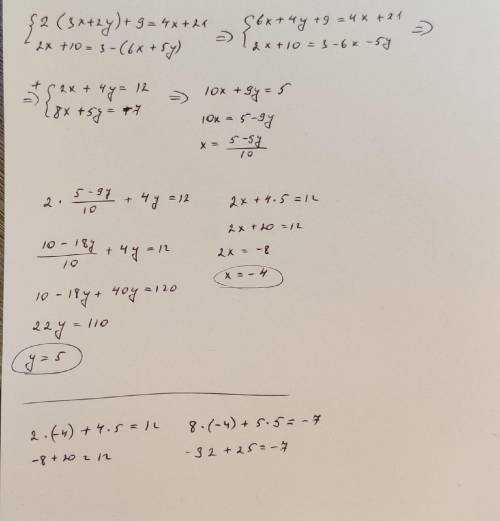 {2(3x+2y)+9=4x+21 => {6x+4y+9=4x+21 =>
2x+10=3-(6x+5y) 2x+10=3-6x-5y
=> + {2x+4y=12 => 10x+9y=5
8x+5y=-7 10x=5-9y
x=(5-5y)/10
2·(5-9y)/10+4y=12
(10-18y)/10+4y=12
10-18y+40y=120
22y=110
y=5
2x+4·5=12
2x+20=12
2x=-8
x=-4
2·(-4)+4·5=12
-8+20=12
8·(-4)+5·5=-7
-32+25=-7